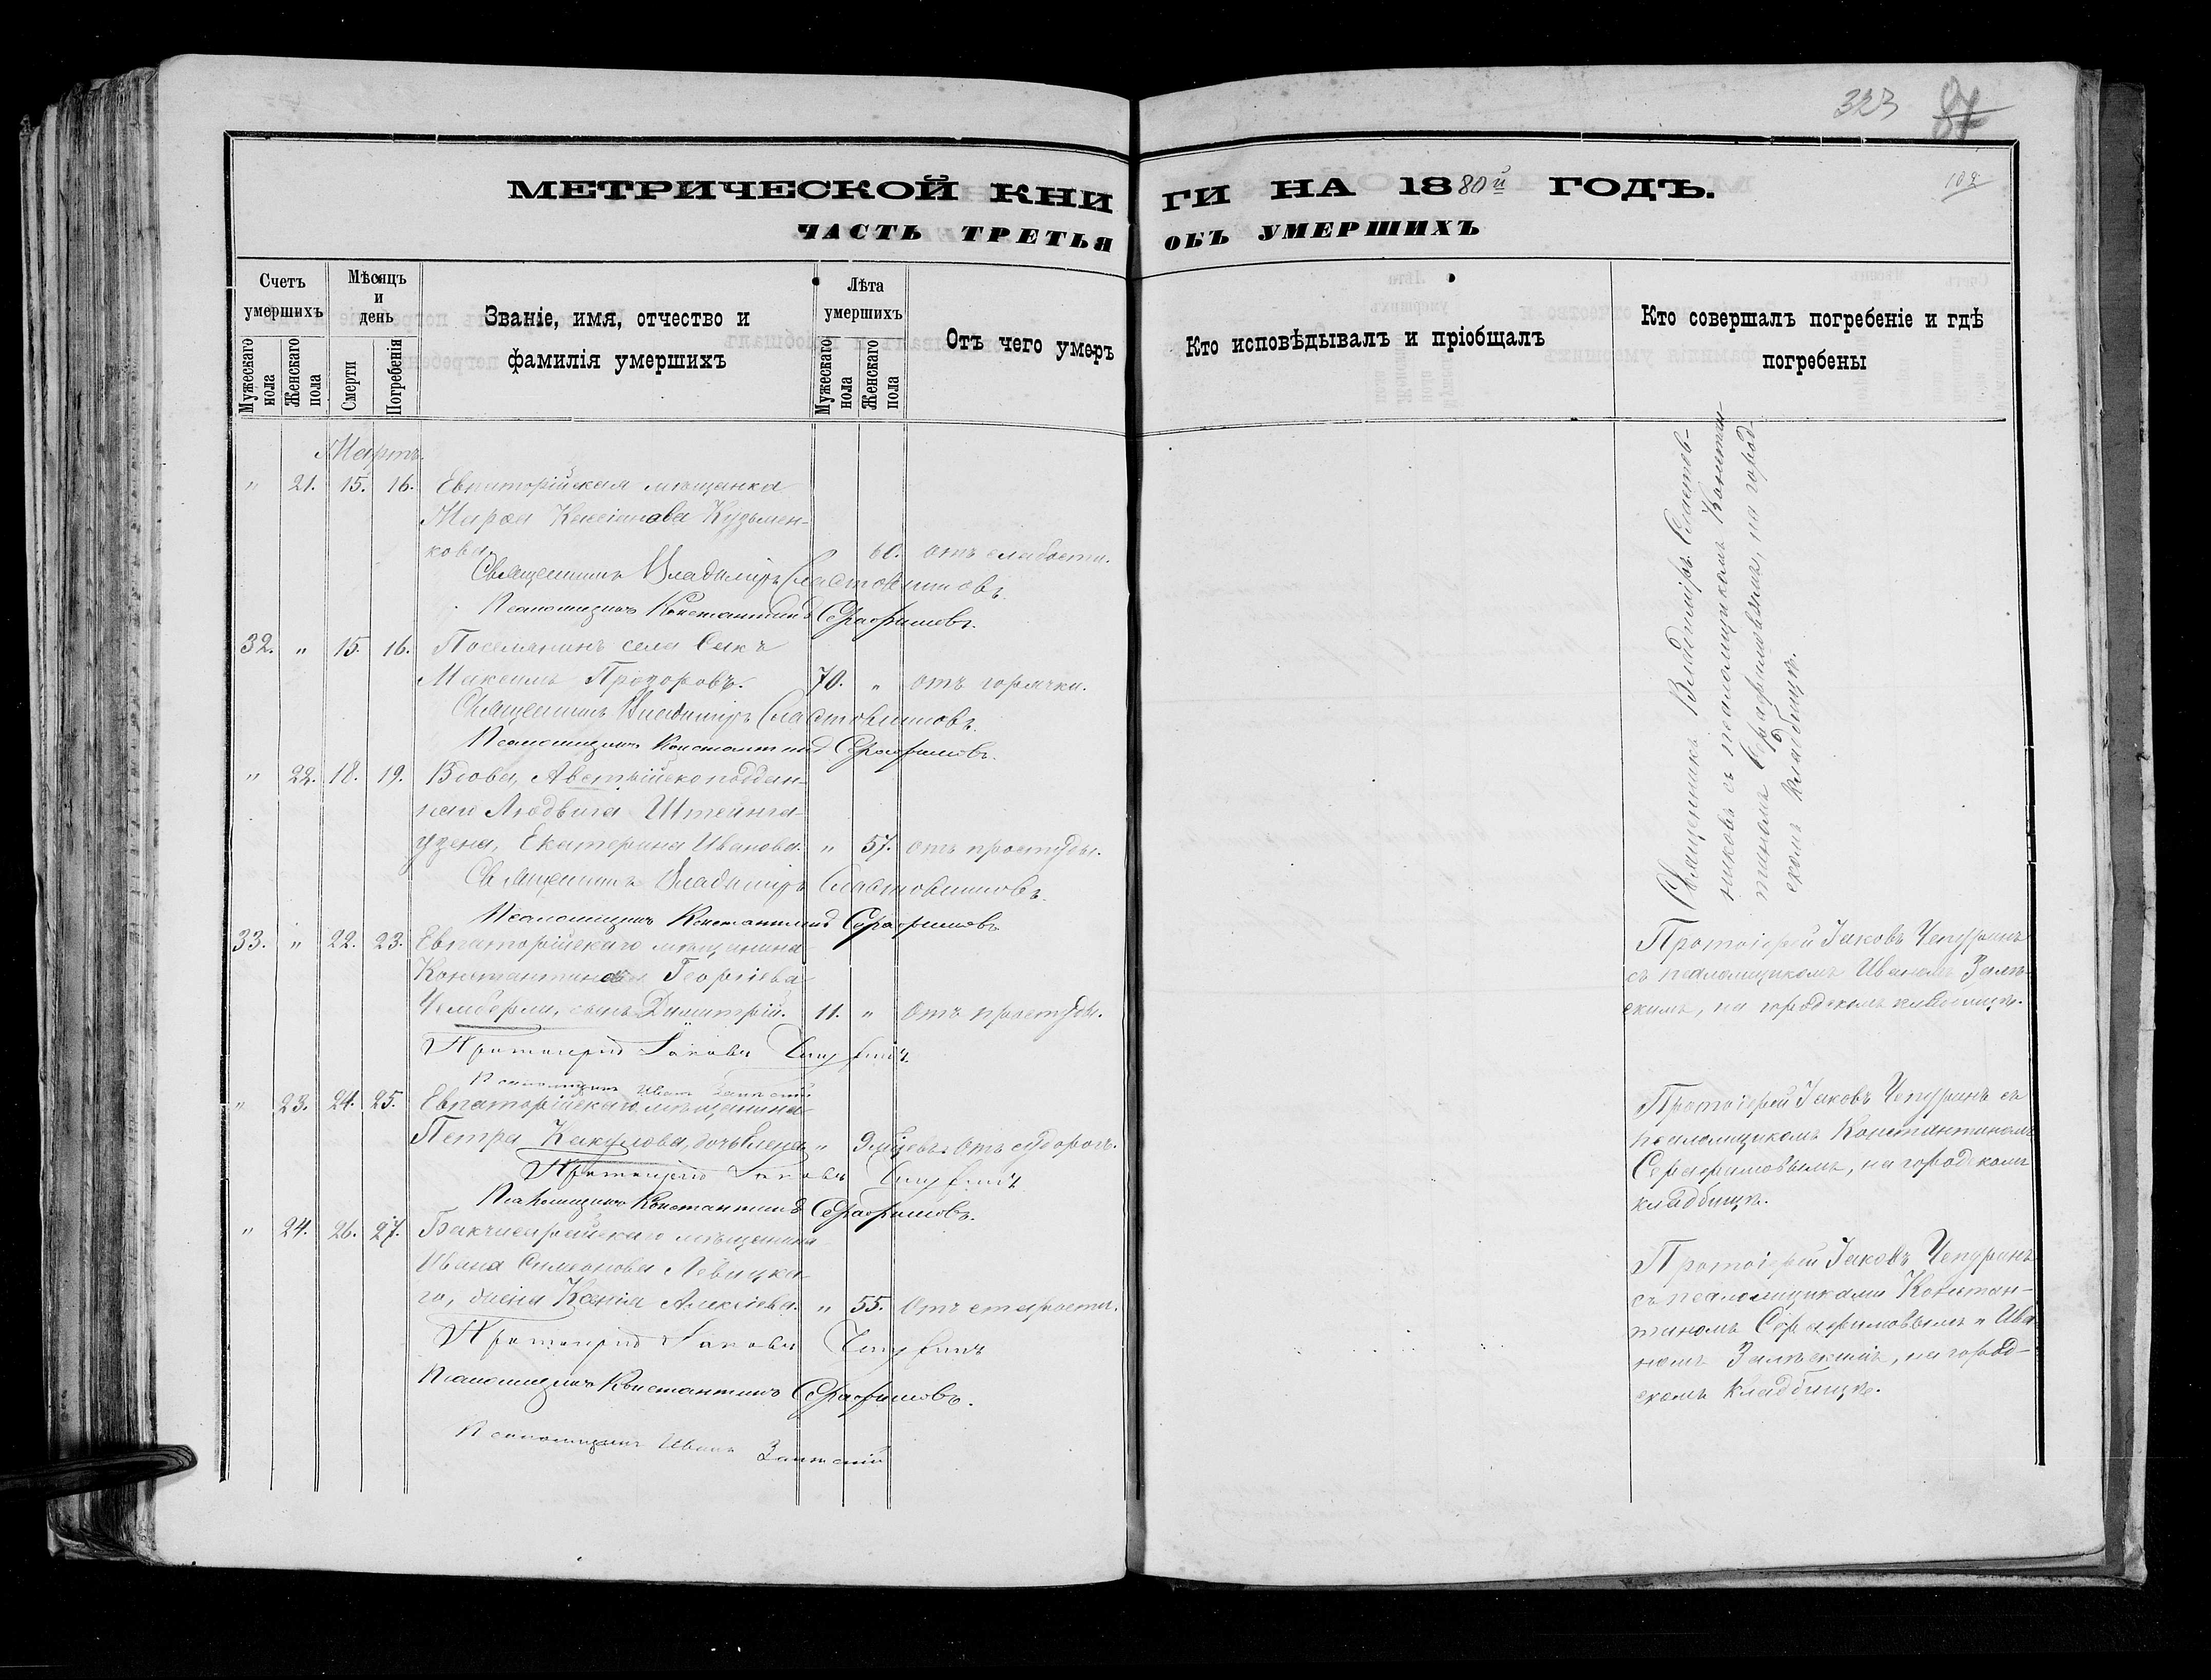 323 87
108
МЕТРИЧЕСКОЙ КНИ ГИ НА 1880й ГОДЪ.
ЧАСТЬ ТРЕТЬЯ ОБЪ УМЕРШИХЪ
Счетъ умершихъ
Мужескаго пола
Женскаго пола
Мѣсяцъ и день
Смерти
Погребенія
Званіе, имя, отчество и фамилія умершихъ
Лѣта умершихъ
Мужескаго пола
Женскаго пола
Отъ чего умеръ
Кто исповѣдывалъ и пріобщалъ
Кто совершалъ погребеніе и гдѣ погребены
Мартъ.
" 21. 15. 16. Евпаторійская мѣщанка
Кузьмен-
кова. " 60. отъ слабости.
Священникъ Владиміръ Сластовниковъ.
Псаломщикъ Константинъ Серафимовъ.
32. " 15. 16. Поселянинъ села Сакъ
Максимъ Прозоровъ. 70. " отъ горячки.
Священникъ Владиміръ Сластовниковъ.
Псаломщикъ Константинъ Серафимовъ.
" 22. 18. 19. Вдова, Австрійскоподдан-
наго Людвига Штейнга-
узена, Екатерина Иванова. " 57. отъ простуды.
Священникъ Владиміръ Сластовниковъ.
Псаломщикъ Константинъ Серафимовъ
Священникъ Владиміръ Сластов-
никовъ съ псаломщикомъ Констан-
тиномъ Серафимовымъ, на город-
скомъ кладбищѣ.
33. " 22. 23. Евпаторійскаго мѣщанина
Константина Георгіева
сынъ Димитрій. 11. " Отъ простуды.
Протоіерей Іаковъ Чепуринъ
Псаломщикъ Иванъ
Протоіерей Іаковъ Чепуринъ
съ псаломщикомъ Иваномъ Залѣ-
скимъ, на городскомъ кладбищѣ.
" 23. 24. 25. Евпаторійскаго мѣщанина
Петра Какулова, дочь Елена " 9 мѣсцевъ. Отъ судорогъ.
Протоіерей Іаковъ Чепуринъ
Псаломщикъ Константинъ Серафимовъ.
Протоіерей Іаковъ Чепуринъ съ
псаломщикомъ Константиномъ
Серафимовымъ, на городскомъ
кладбищѣ.
" 24. 26. 27. Бахчисарайскаго мѣщанина
Ивана Симеонова Левицка-
го, жена Ксенія Алексіева. " 55. Отъ старости.
Протоіерей Іаковъ Чепуринъ
Псаломщикъ Константинъ Серафимовъ.
Псаломщикъ Иванъ
Протоіерей Іаковъ Чепуринъ
съ псаломщиками Констан-
тиномъ Серафимовымъ и Ива
номъ Залѣскимъ, на город-
скомъ кладбищѣ.